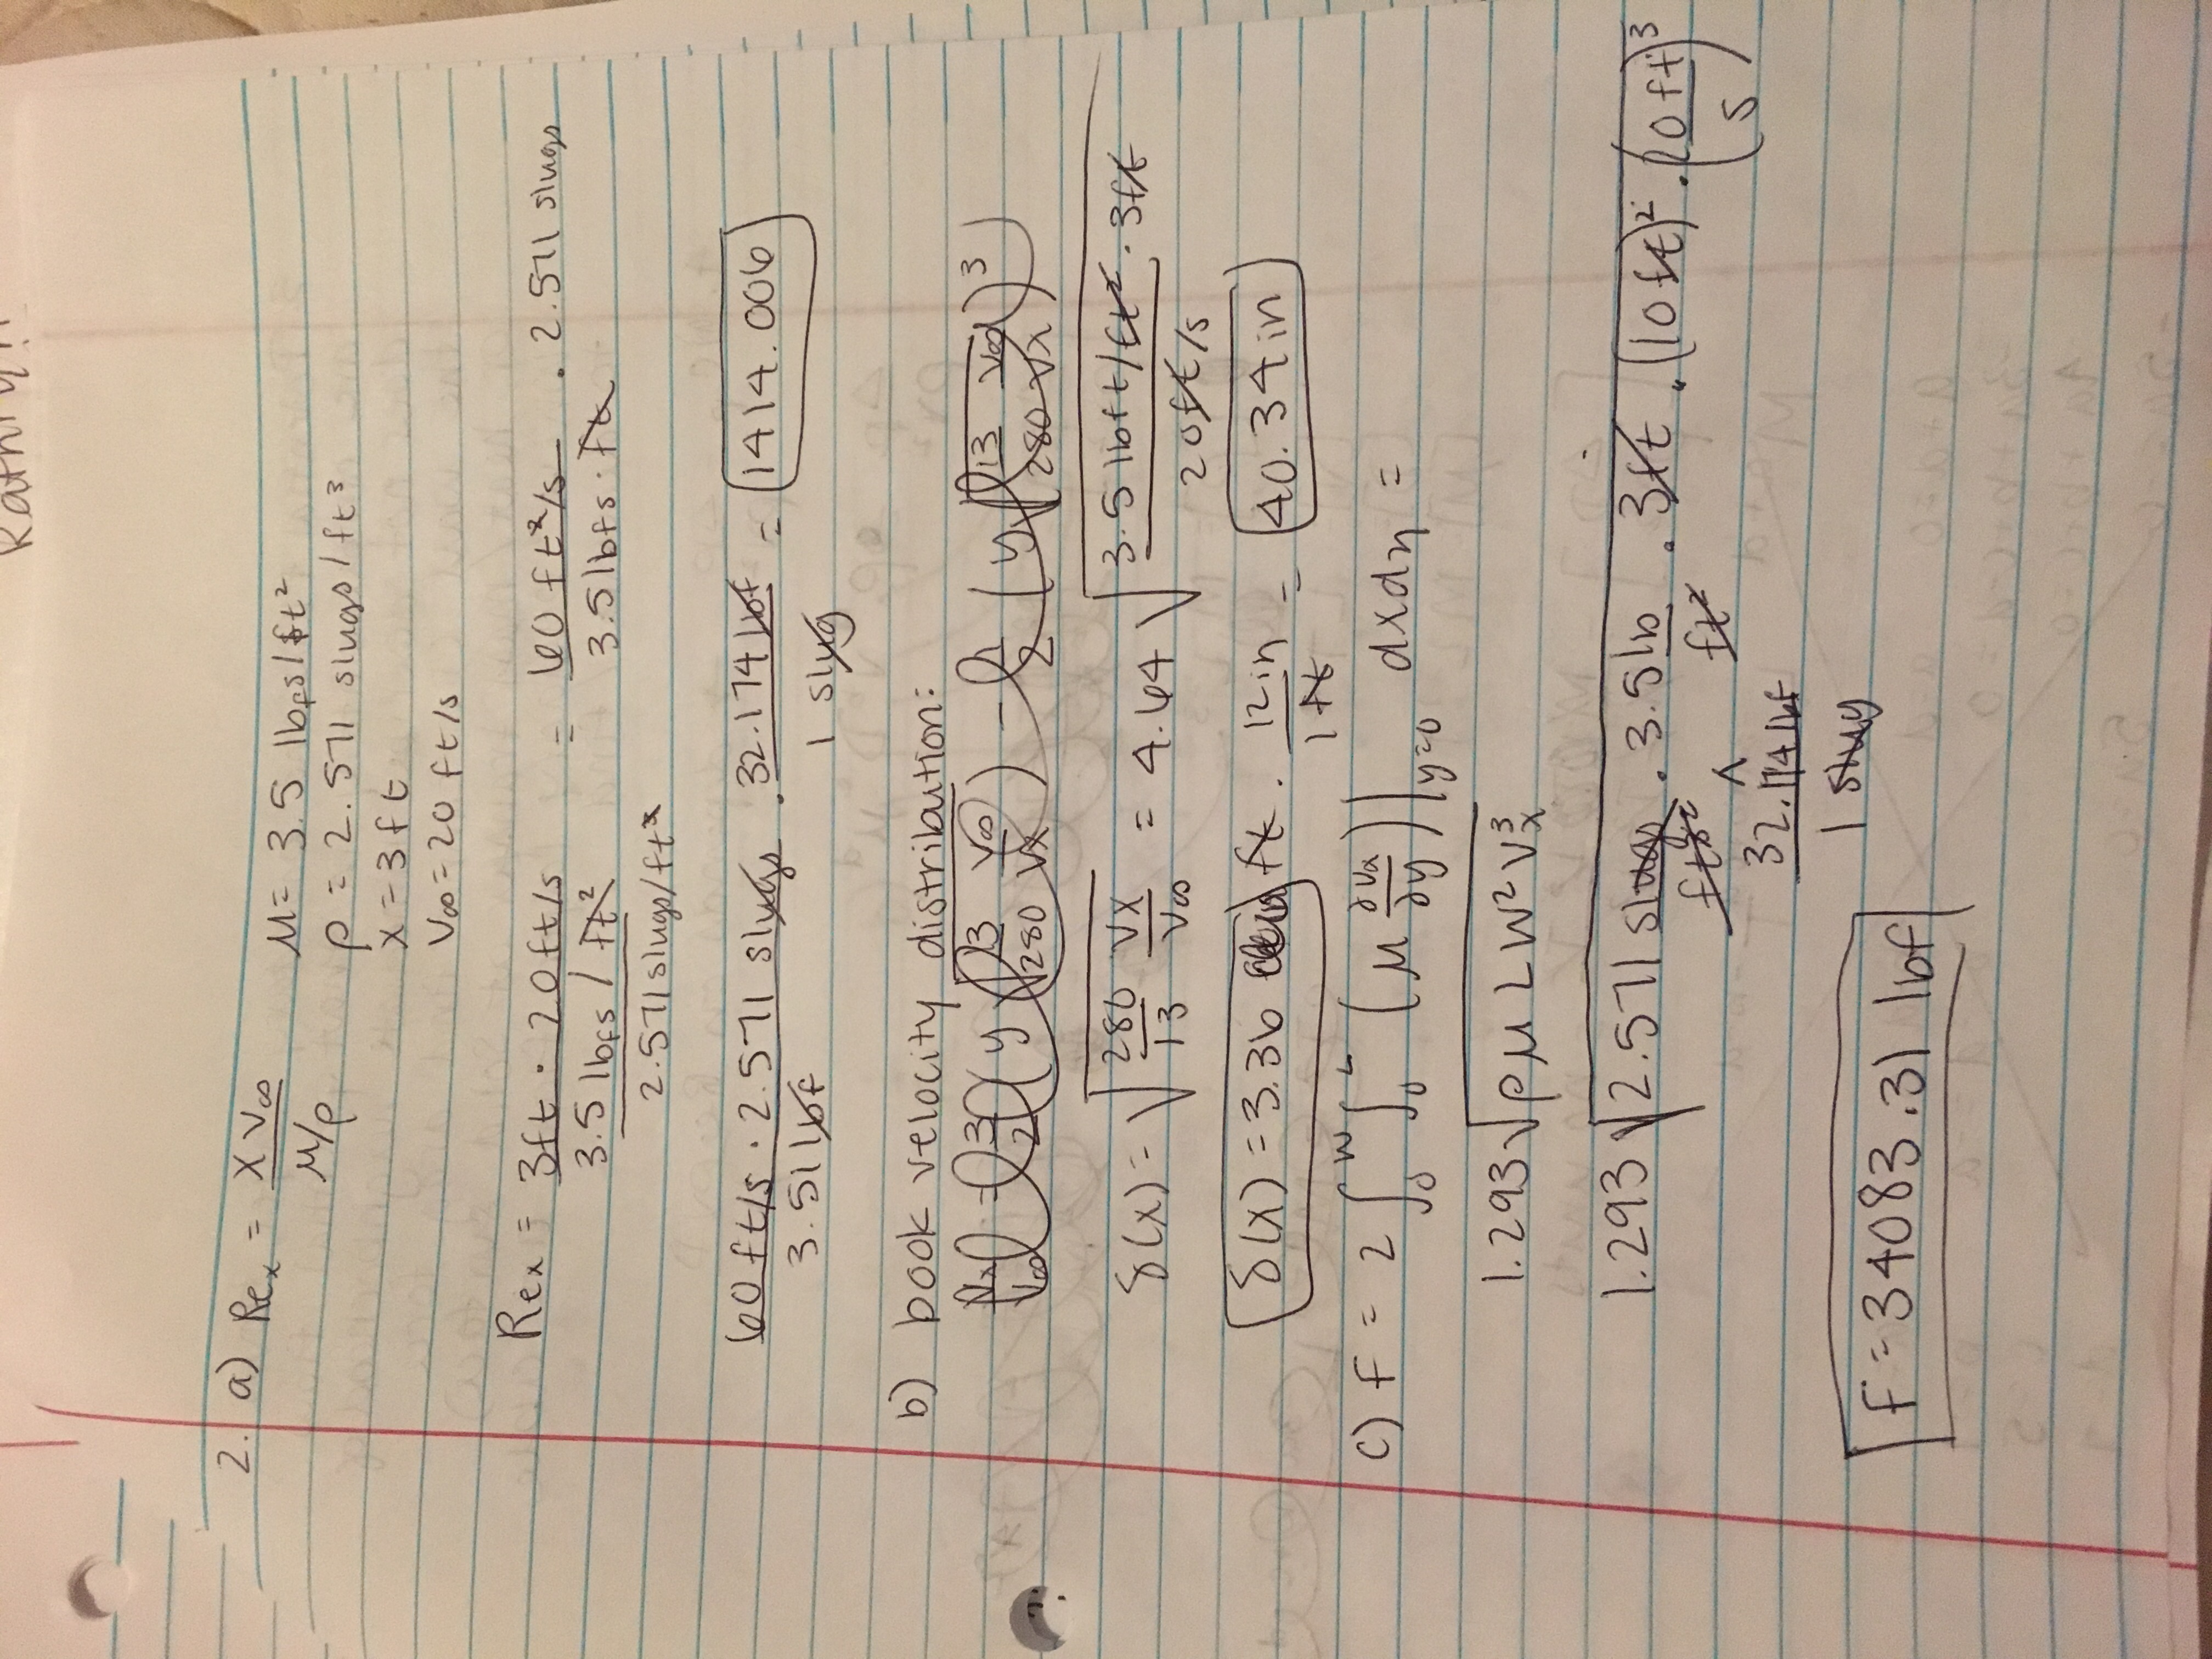 2. a) Re_x = x v∞ / (μ/ρ)
μ = 3.5 lbfs/ft²
ρ = 2.571 slugs/ft³
x = 3ft
v∞ = 20 ft/s
Re_x = 3ft · 20ft/s / (3.5 lbfs/ft² / 2.571 slugs/ft³) = 60 ft²/s / 3.5 lbfs · ft · 2.571 slugs
60 ft/s · 2.571 slugs / 3.51 lbf · 32.174 lbf / 1 slug = 1414.006
b) book velocity distribution:
vx / v∞ = 3/2 (y √(13/280 v∞/vx)) - 1/2 (y √(13/280 v∞/vx))³
δ(x) = √(280/13 vx/v∞) = 4.64 √(3.5 lbft/ft² · 3ft / 20ft/s)
δ(x) = 3.36 ft · 12in / 1ft = 40.34 in
c) F = 2 ∫₀ᵂ ∫₀ᴸ (μ ∂vx/∂y)|y=0 dxdη =
1.293 √(ρμLW²Vx³)
1.293 √(2.571 slugs/ft³² · 3.5 lb/ft² · 3ft · (10ft)² · (20ft/s)³)
^
32.174 lbf / 1 slug
F = 34083.31 lbf